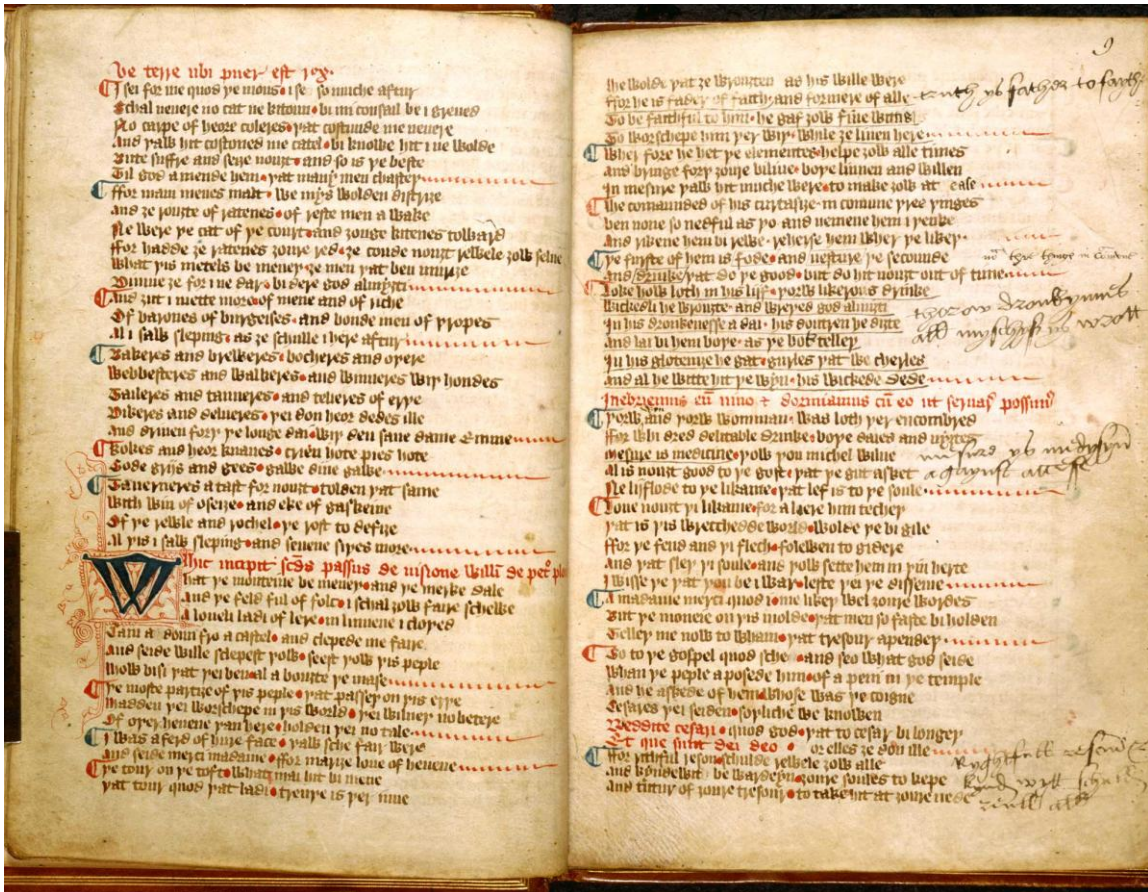 Ve terre ubi puer est rex
I sei for me quod ye mous · i se so muche aftur
Schal nevere no cat ne kitoun · bi mi counsail be i greved
No carpe of heore coleres · yat costnide me nevere
And yauh hit costoned me catel · bi knowe hit i ne wolde
Bute suffre and seȝe nouȝt · and so is ye beste
Til god amende hem · yat many men chastey
ffor mani menes malt · we mys wolden distruȝe
And ȝe route of ratones · of reste men a wake
Ne were ye cat of ye court · and ȝonge kitenes toward
ffor hadde ȝe ratenes ȝoure red · ȝe coude nouȝt rewele ȝow selve
What yis metels be meney · ȝe men yat ben muriȝe
Divine ȝe for i ne dar · bi dere god almyȝti
And ȝut i mette more · of mene and of riche
Of barones of burgeises · and bonde men of yropes
Al i sauh sleping · as ȝe schulle i here aftur
Bakeres and breweres · bocheres and oyere
Webbesteres and walkeres · and winneres wiy hondes
Taileres and tanneres · and telieres of erye
Dikeres and delveres · yei don heor dedes ille
And driven fory ye longe dai · wiy deu save dame Emme
Cokes and heor knaves · crien hote pies hote
Gode grijs and gees · gawe dine gawe
Taverneres a tast for nouȝt · tolden yat same
With win of oseiȝe · and eke of gaskeine
Of ye rewle and rochel · ye rost to defiȝe
Al yis i sauh sleping · and sevene siyes more
Hic incipit scds passus de visione Willi de petro plo
What ye monteine be meney · and ye merke dale
And ye feld ful of folk · i schal ȝow faire schewe
A loveli ladi of lere · in linnene i cloyed
Cam a doun fro a castel · and clepede me faire
And seide wille slepest yow · seest yow yis peple
How bisi yat yei ben · al a boute ye mase
Ye moste partiȝe of yis peple · yat passey on yis erye
Hadden yei worschepe in yis world · yei wilney no betere
Of oyer hevene yan here · holden yei no tale
I was aferd of hire face · yauh sche fair were
And seide merci madame · ffor mariȝe love of hevene
Ye tour on ye tofte · what mai hit bi mene
Yat tour quod yat ladi · treuye is yer inne
9
He wolde yat ȝe wrouȝten as his wille were
ffor he is fader of faith and formere of alle
truth ys father to fayth
To be faithful to him · he gaf ȝow five wittis
To worschepe him yer wiy · while ȝe liven here
Wher fore he het ye elementes · helpe ȝow alle times
And bringe fory ȝoure bilive · boye linnen and willen
In mesure yauh hit muche were · to make ȝow at ease
He comaunded of his curtasiȝe · in comune yree yinges
ben none so nedful as yo · and nemene hem i yenke
And rikene hem bi rewe · reherse hem wher ye likey
Ye furste of hem is fode · and vesture ye secounde
And drinke yat do ye good · but do hit nouȝt out of tume
Loke how loth in his lijf · yorw likerous drinke
Wickedli he wrouȝte · and wreyed god almiȝti
thorow dronkynnes
In his dronkenesse a dai · his douȝtren he diȝte
all myschyf ys wrott
And lai bi hem boye · as ye bok telley
In his glotenie he gat · gurles yat we cherles
And al he witte hit ye wyn · his wickede dede
Inebriemus eu vino & dormiamus cu eo ut servar possim
Yorw win and yorw womman · was loth yer encombred
ffor whi dred delitable drinke · boye daies and niȝtes
Mesure is medicine · yow you michel wilne
mesure ys medysyn
Al is nouȝt good to ye gost · yat ye gut askey
agaynst
Ne liflode to ye likame · yat lef is to ye soule
Love nouȝt yi likame · for a liere him techey
Yat is yis wrecchedde world · wolde ye bi gile
ffor ye fend and yi flech · folewen to gidere
And yat sley yi soule · and yow sette hem in yin herte
I wisse ye yat you be i war · leste yei ye disseive
A madame merci quod i · me likey wel ȝoure wordes
But ye moneie on yis molde · yat men so faste bi holden
Telley me now to wham · yat tresour apendey
Go to ye gospel quod sche · and seo what god seide
Whan ye peple a posede him · of a peni in ye temple
And he askede of hem · whose was ye coigne
Cesares yei seiden · soyliche we knowen
Reddite cesari · quod god · yat to cesar bi longey
Et que sunt dei deo · or elles ȝe don ille
Ryghtfull reson
ffor riȝtful reson · schulde rewele ȝow alle
Kynd wytt
And kyndewit · be wardeyn · ȝoure soules to kepe
And tutur of ȝoure tresour · to take hit at ȝoure nede
rewll all